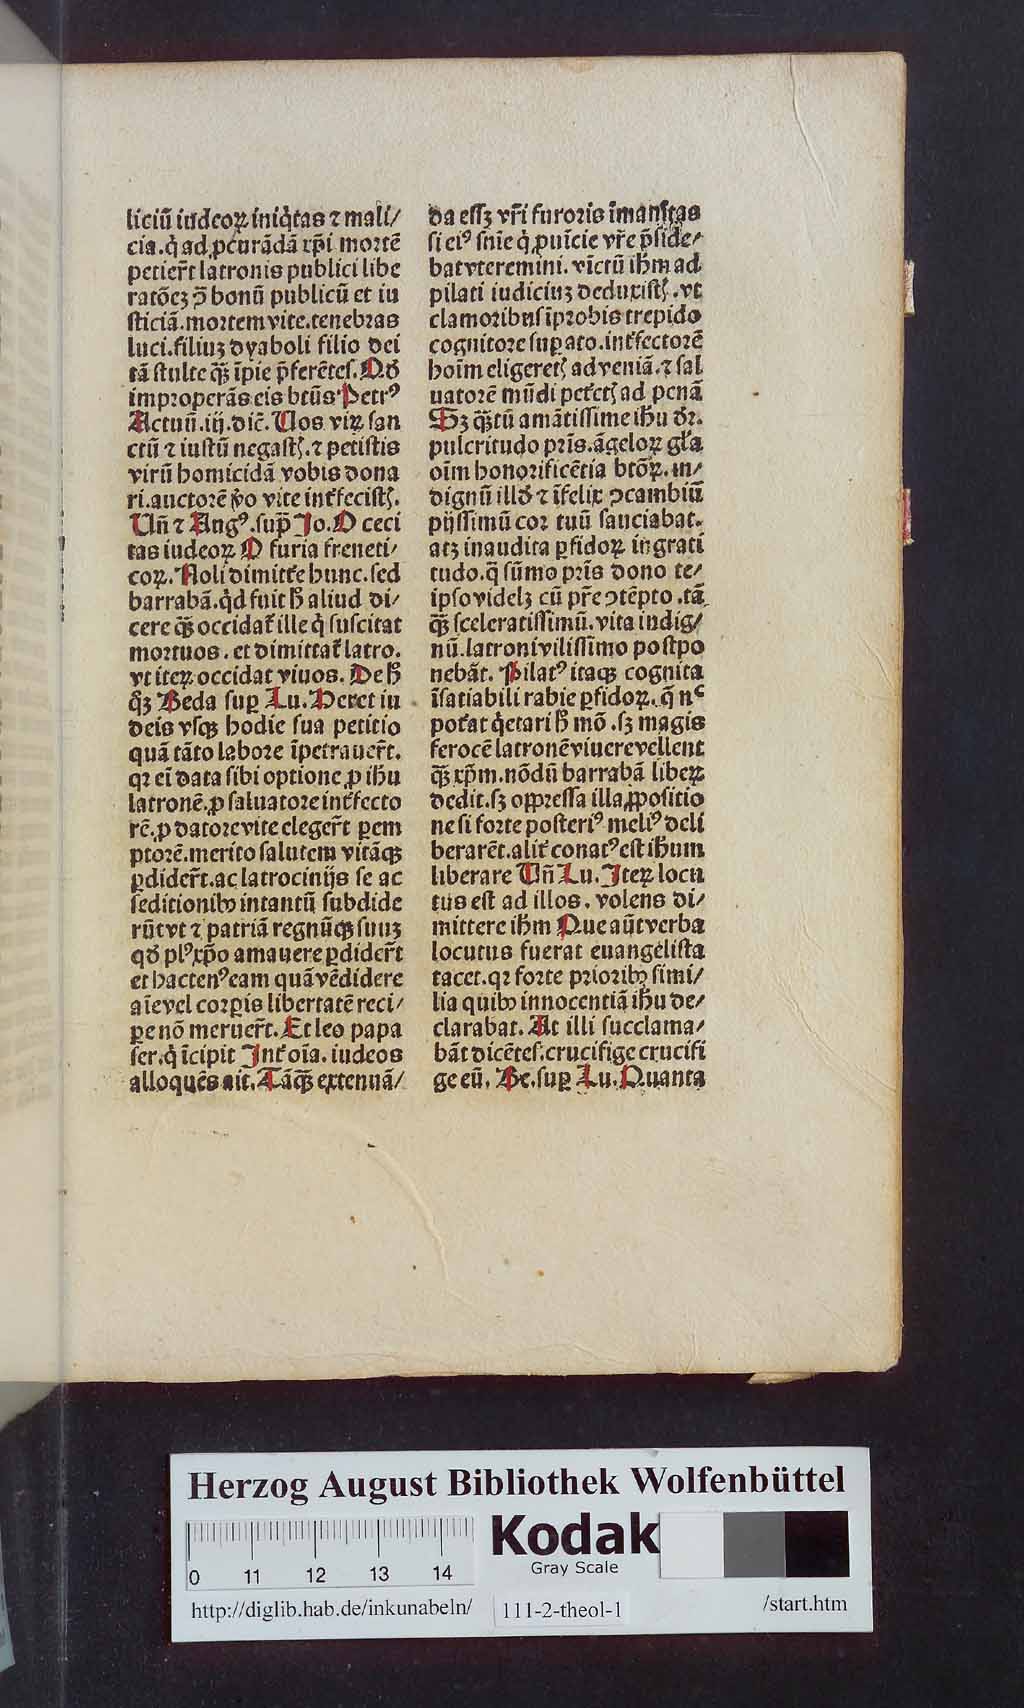 liciū iudeoꝝ iniq̇tas ⁊ mali/
cia. q̇ ad ꝓcurādā xp̄i mortē
petier̄t latronis publici libe
ratōeꝫ p̄ bonū publicū et iu
sticiā. mortem vite. tenebras
luci. filiuꝫ dyaboli filio dei
tā stulte qꝫ̄ īpie p̄ferētes. Qd̛
improperās eis btūs Petrꝰ
Actuū. iij. dic̄. Uos viꝝ san
ctū ⁊ iustū negastꝭ. ⁊ petistis
virū homicidā vobis dona
ri. auctorē v̊o vite int̛fecistꝭ.
Un̄ ⁊ Augꝰ. sup̄ Jo. O ceci
tas iudeoꝝ O furia freneti/
coꝝ. Noli dimitt̛e hunc. sed
barrabā. q̇d fuit h̄ aliud di/
cere qꝫ̄ occidat̛ ille q̇ suscitat
mortuos. et dimittat̛ latro.
vt iteꝝ occidat viuos. De h̄
q̇ꝫ Beda suꝑ Lu. Heret iu
deis vsqꝫ hodie sua petitio
quā tāto labore īpetrauer̄t.
qꝛ ei̇ data sibi optione ꝓ ih̄u
latronē. ꝓ saluatore int̛fecto
rē. ꝓ datore vite eleger̄t ꝑem
ptorē. merito salutem vitāqꝫ
ꝑdider̄t. ac latrocinijs se ac
seditionibꝰ intantū subdide
rūt vt ⁊ patriā regnūqꝫ suuꝫ
qd̛ plꝰ xp̄o amauere ꝑdider̄t
et hactenꝰ eam quā vēdidere
aīe vel corꝑis libertatē reci/
ꝑe nō meruer̄t. Et leo papa
ser. q̇ īcipit Int̛ oīa. iudeos
alloquēs ait. Tāqꝫ̄ extenuā/
da essꝫ vr̄i furoris īmanitas
si eiꝰ sn̄ie q̇ ꝓuīcie vr̄e p̄side/
bat vteremini. vīctū ih̄m ad
pilati iudiciuꝫ deduxistꝭ. vt
clamoribus īprobis trepido
cognitore suꝑato. int̛fectorē
hoīm eligeretꝭ ad veniā. ⁊ sal
uatorē mūdi pet̛etꝭ ad penā
Sꝫ qꝫ̄tū amātissime ih̄u dr̄.
pulcritudo pr̄is. āgeloꝝ gl̄a
oīm honorificētia btōꝝ. in/
dignū illd̛ ⁊ īfelix ꝯcambiū
pijssimū cor tuū sauciabat.
atꝫ inaudita ꝑfidoꝝ ingrati
tudo. q̄ sūmo pr̄is dono te/
ipso videlꝫ cū pr̄e ꝯtēpto. tā
qꝫ̄ sceleratissimū. vita indig/
nū. latroni vilissīmo postpo
nebāt. Pilatꝰ itaqꝫ cognita
īsatiabili rabie ꝑfidoꝝ. q̄ nᶜ
pot̛at q̇etari h̄ mō. sꝫ magis
ferocē latronē viuere vellent
qꝫ̄ xp̄m. nōdū barrabā libeꝝ
dedit. sꝫ oppressa illa ꝓpositio
ne si forte posteriꝰ meliꝰ deli
berarēt. alit̛ conatꝰ est ih̄um
liberare Un̄ Lu. Iteꝝ locu
tus est ad illos. volens di/
mittere ih̄m Que aūt verba
locutus fuerat euangelista
tacet. qꝛ forte prioribꝰ simi/
lia quibꝰ innocentiā ih̄u de/
clarabat. At illi succlama/
bāt dicētes. crucifige crucifi
ge eū. Be. suꝑ Lu. Quanta
Herzog August Bibliothek Wolfenbüttel
0 11 12 13 14
Kodak
Gray Scale
http://diglib.hab.de/inkunabeln/ 111-2-theol-1 /start.htm